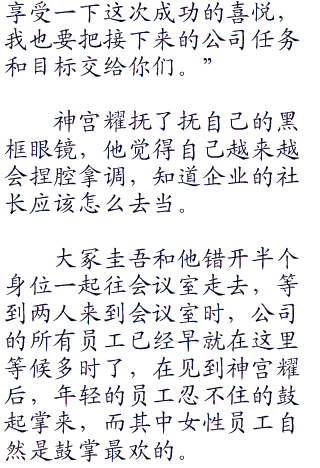 享受一下这次成功的喜悦，
我也要把接下来的公司任务
和目标交给你们。”
神宫耀抚了抚自己的黑
框眼镜，他觉得自己越来越
会捏腔拿调，知道企业的社
长应该怎么去当。
大冢圭吾和他错开半个
身位一起往会议室走去，等
到两人来到会议室时，公司
的所有员工已经早就在这里
等候多时了，在见到神宫耀
后，年轻的员工忍不住的鼓
起掌来，而其中女性员工自
然是鼓掌最欢的。